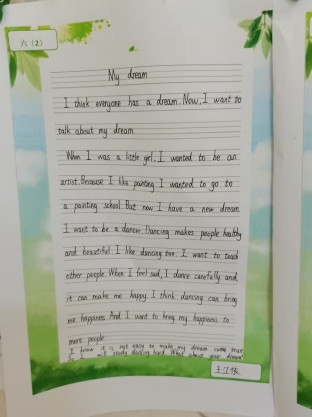 六（2）
My dream
I think everyone has a dream. Now, I want to
talk about my dream.
When I was a little girl. I wanted to be an
artist. Because I like painting. I wanted to go to
a painting school. But now I have a new dream.
I want to be a dancer. Dancing makes people healthy
and beautiful. I like dancing too. I want to teach
other people. When I feel sad, I dance carefully and
it can make me happy. I think dancing can bring
me happiness. And I want to bring my happiness to
more people.
I know it is not easy to make my dream come true.
I will study dancing hard. What about your dream?
王